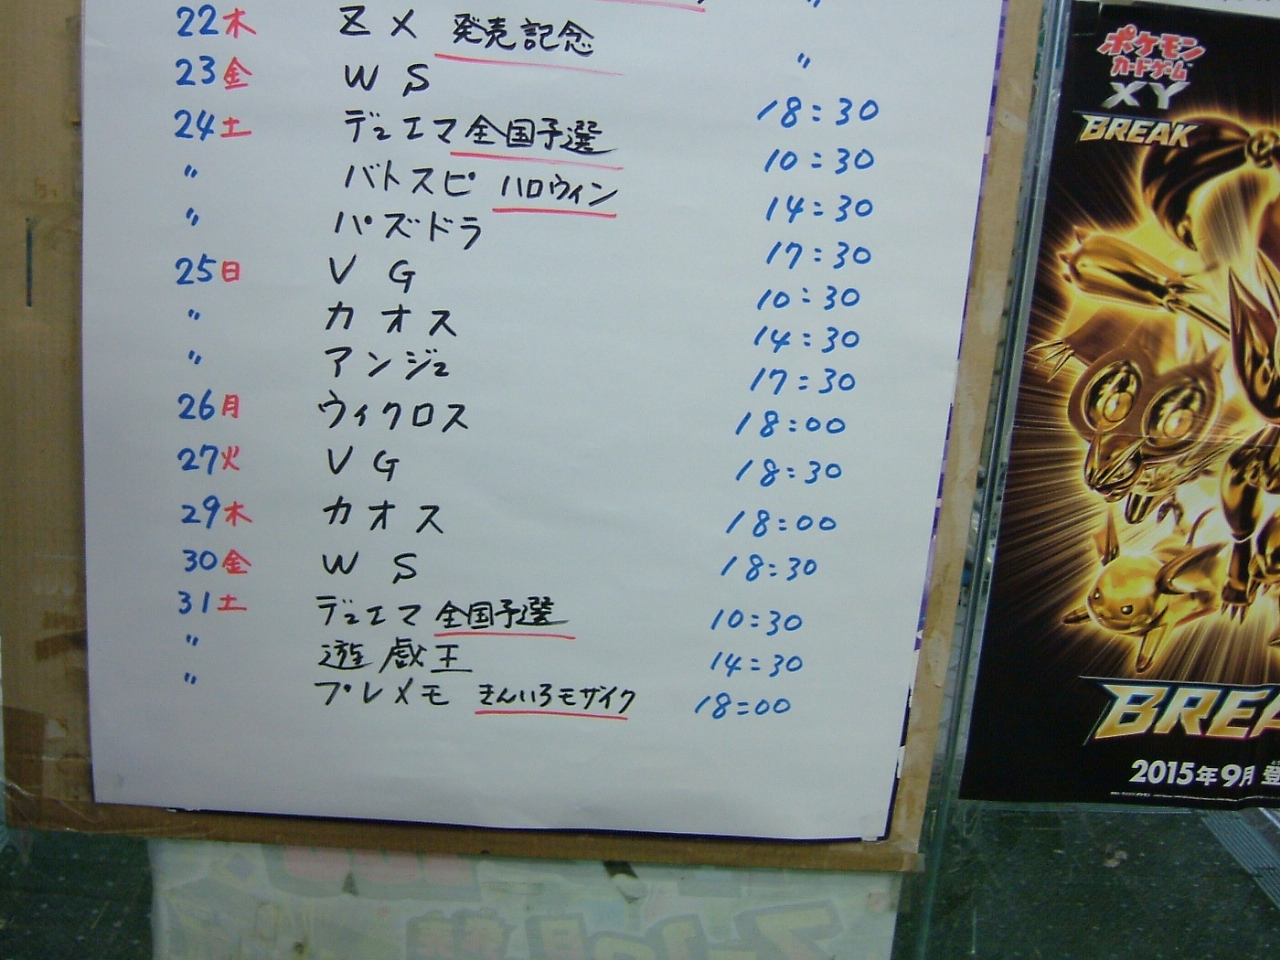 〃
22 木 Z X 発売記念 〃
23 金 W S 18:30
24 土 デュエマ 全国予選 10:30
〃 バトスピ ハロウィン 14:30
〃 パズドラ 17:30
25 日 V G 10:30
〃 カオス 14:30
〃 アンジュ 17:30
26 月 ウィクロス 18:00
27 火 V G 18:30
29 木 カオス 18:00
30 金 W S 18:30
31 土 デュエマ 全国予選 10:30
〃 遊戯王 14:30
〃 プレメモ きんいろモザイク 18:00
ポケモン
カードゲーム
XY
BREAK
BREA
2015年9月 登